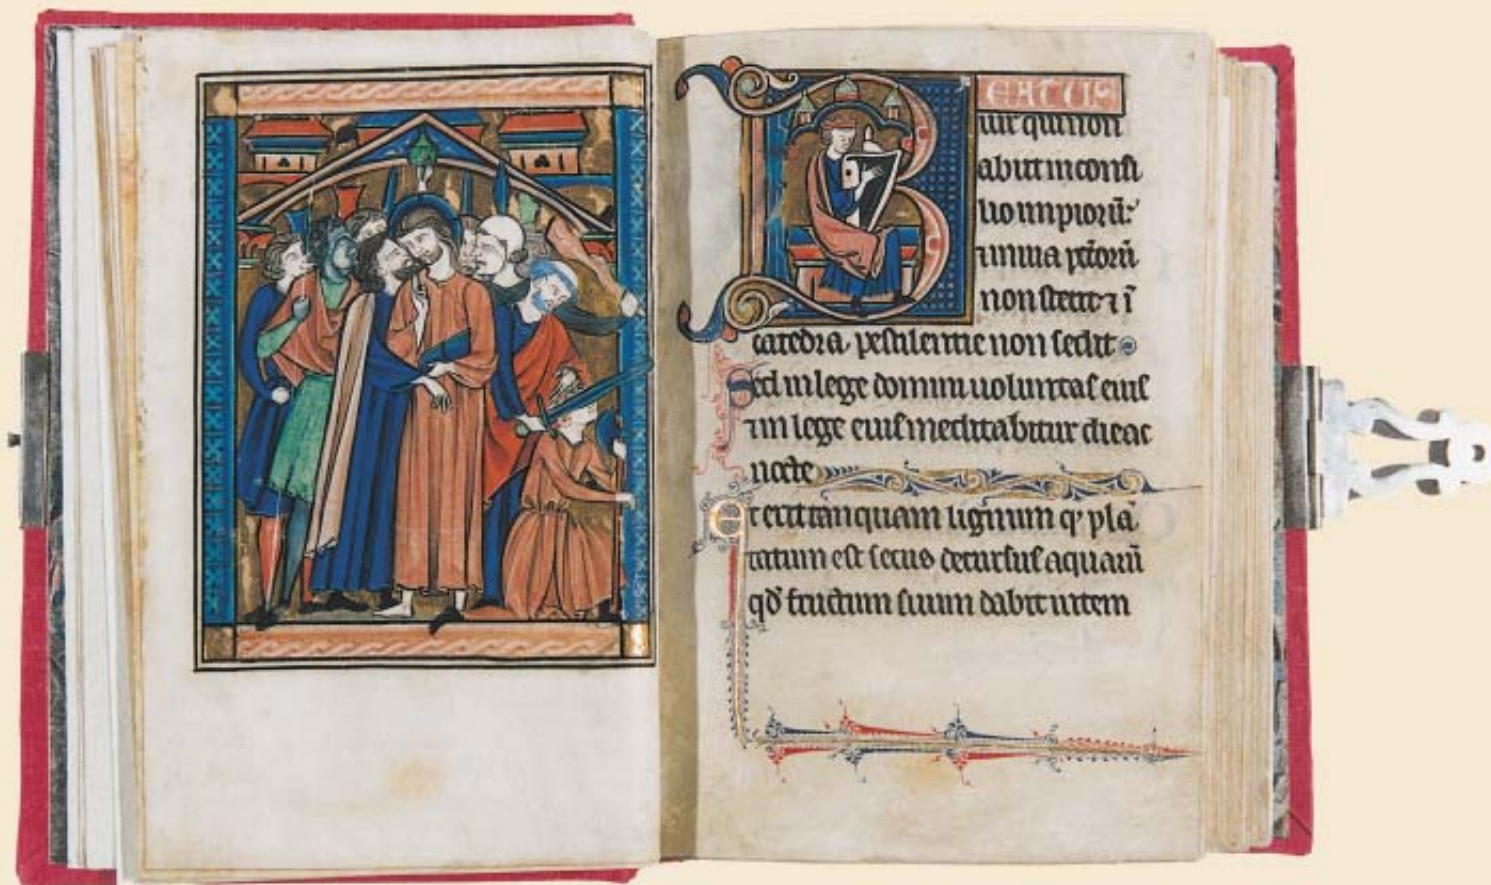 BEATUS
uir qui non
abiit in consi
lio impiorū:
⁊ in uia pctōrū
non stetit ⁊ ī
catedra pestilentie non sedit
Sed in lege domini uoluntas eius
⁊ in lege eius meditabitur die ac
nocte
Et erit tanquam lignum qd' pla
tatum est secus decursus aquarū
qd' fructum suum dabit in tem